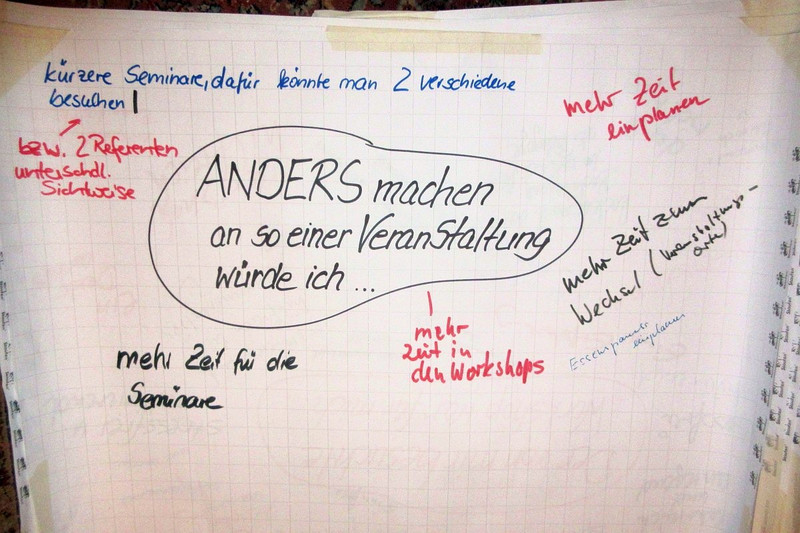 kürzere Seminare, dafür könnte man 2 verschiedene
besuchen
bzw. 2 Referenten
unterschdl.
Sichtweise
mehr Zeit
einplanen
ANDERS machen
an so einer Veranstaltung
würde ich ...
mehr Zeit zum
Wechsel (Veranstaltungs-
orte)
Essenspause
einplanen
mehr
Zeit in
den Workshops
mehr Zeit für die
Seminare